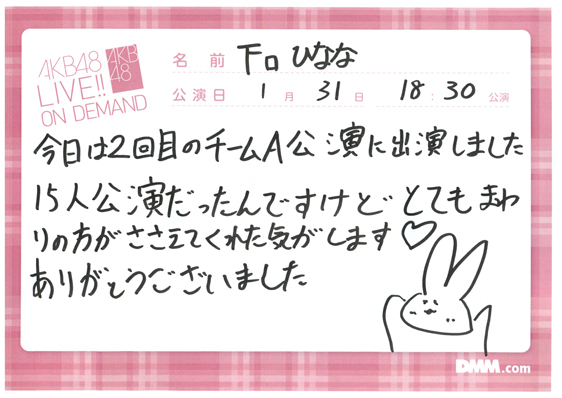 AKB48
LIVE!!
ON DEMAND
AKB
48
名前 下口ひなな
公演日 1月31日 18:30公演
今日は2回目のチームA公演に出演しました
15人公演だったんですけど とてもまわ
りの方がささえてくれた気がします♡
ありがとうございました
DMM.com